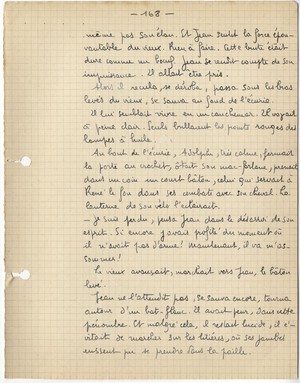 — 168 —
même pas son élan. Et Jean sentit la force épou-
vantable du vieux. Rien à faire. Cette brute était
dure comme un bœuf. Jean se rendit compte de son
impuissance. Il allait être pris.
Alors il recula, se déroba, passa sous les bras
levés du vieux, se sauva au fond de l'écurie.
Il lui semblait vivre en un cauchemar. Il voyait
à peine clair. Seuls brillaient les points rouges des
lampes à huile.
Au bout de l'écurie, Adolphe, très calme, fermait
la porte au crochet, ôtait son prenait
dans un coin un court bâton, celui qui servait à
René le fou dans ses combats avec son cheval. La
lanterne de son vélo l'éclairait.
— Je suis perdu, pensa Jean dans le désarroi de son
esprit. Si encore j'avais profité du moment où
il n'avait pas d'arme! Maintenant, il va m'as-
sommer!
Le vieux avançait, marchait vers Jean, le bâton
levé.
Jean ne l'attendit pas, se sauva encore, tourna
autour d'un bat-flanc. Il avait peur, dans cette
pénombre. Et malgré cela, il restait lucide, il é-
vitait de marcher sur les litières, où ses jambes
eussent pu se prendre dans la paille